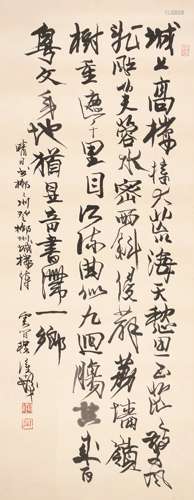 城上高樓接大荒海天愁思正茫茫驚風
亂颭芙蓉水密雨斜侵薜荔牆嶺
樹重遮千里目江流曲似九迴腸共來百
粵文身地猶是音書滯一鄉
晴日書柳柳州登柳州城樓詩
雲間